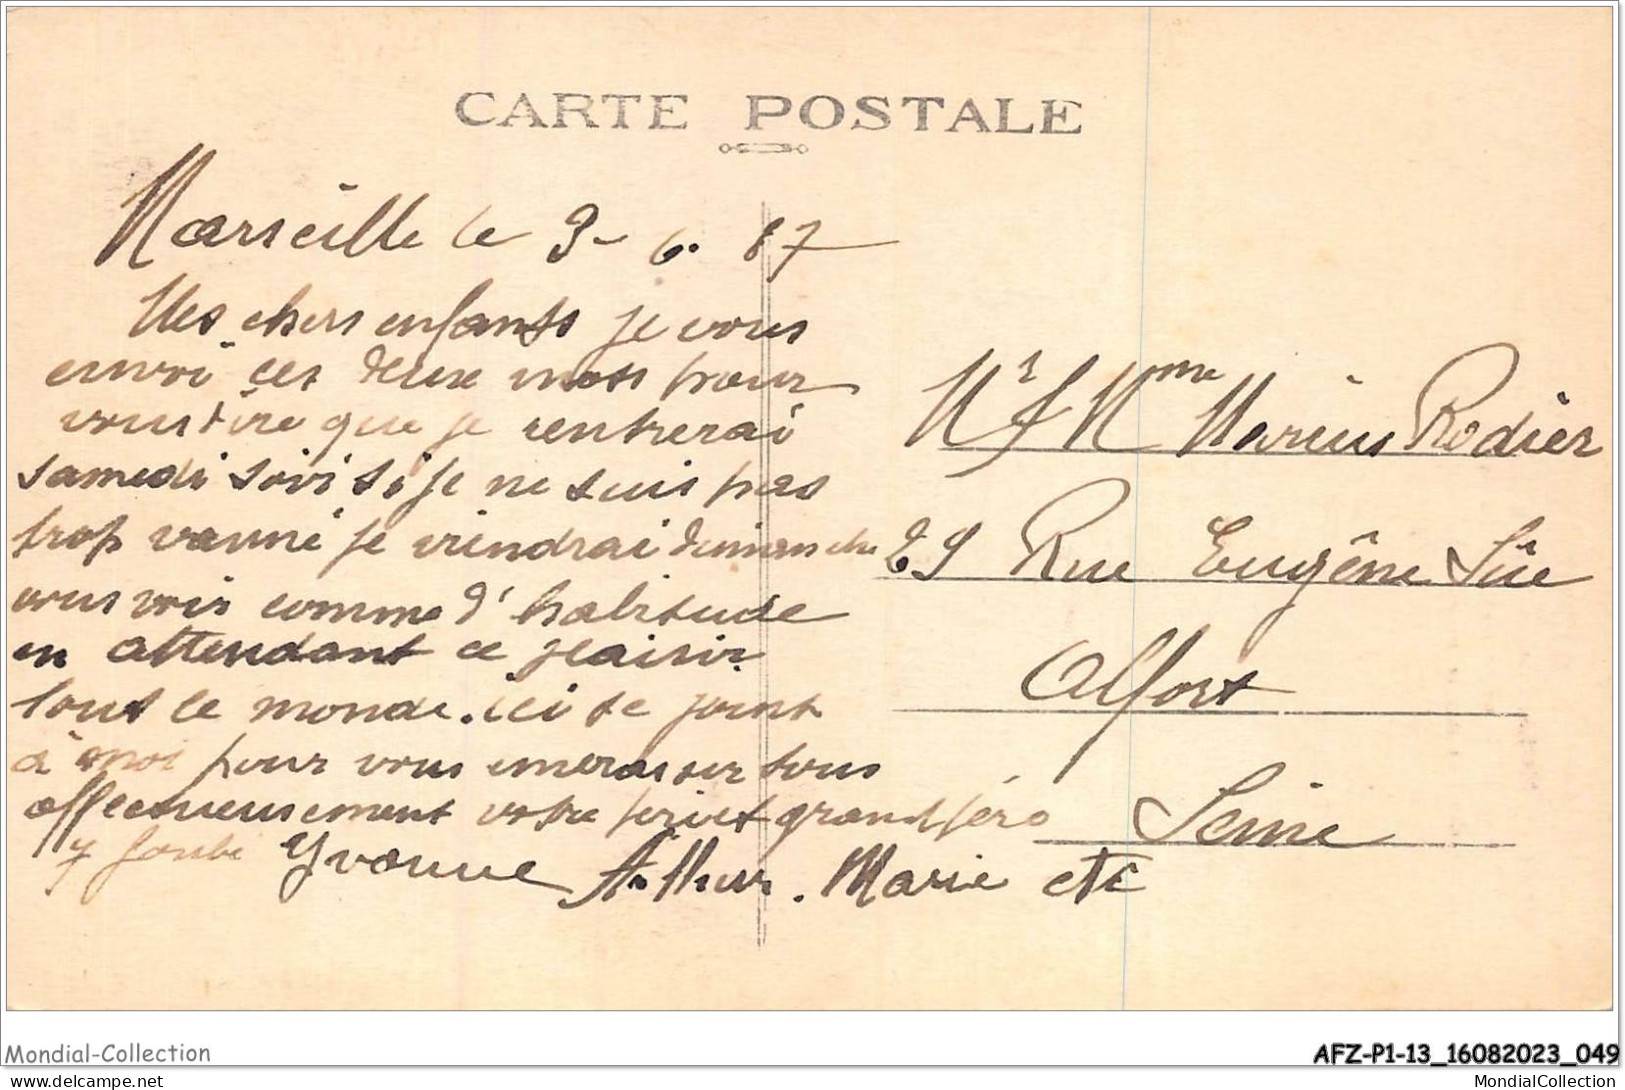 CARTE POSTALE
Marseille le 9-6.87
Mes chers enfants je vous
envoi ces deux mots pour
vous dire que je rentrerai
samedi soir si je ne suis pas
trop vanné je viendrai dimanche
vous voir comme d'habitude
en attendant ce plaisir
tout le monde. ici se joint
à moi pour vous embrasser tous
affectueusement votre
Yvonne Arthur. Marie etc
Mr & Mme Marius Rodier
29 Rue Eugêne Sûe
Alfort
Seine
Mondial-Collection
AFZ-P1-13_16082023_049
delcampe.net
MondialCollection